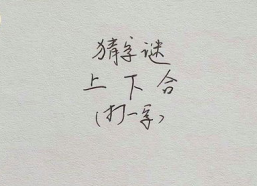 猜字谜
上下合
(打一字)